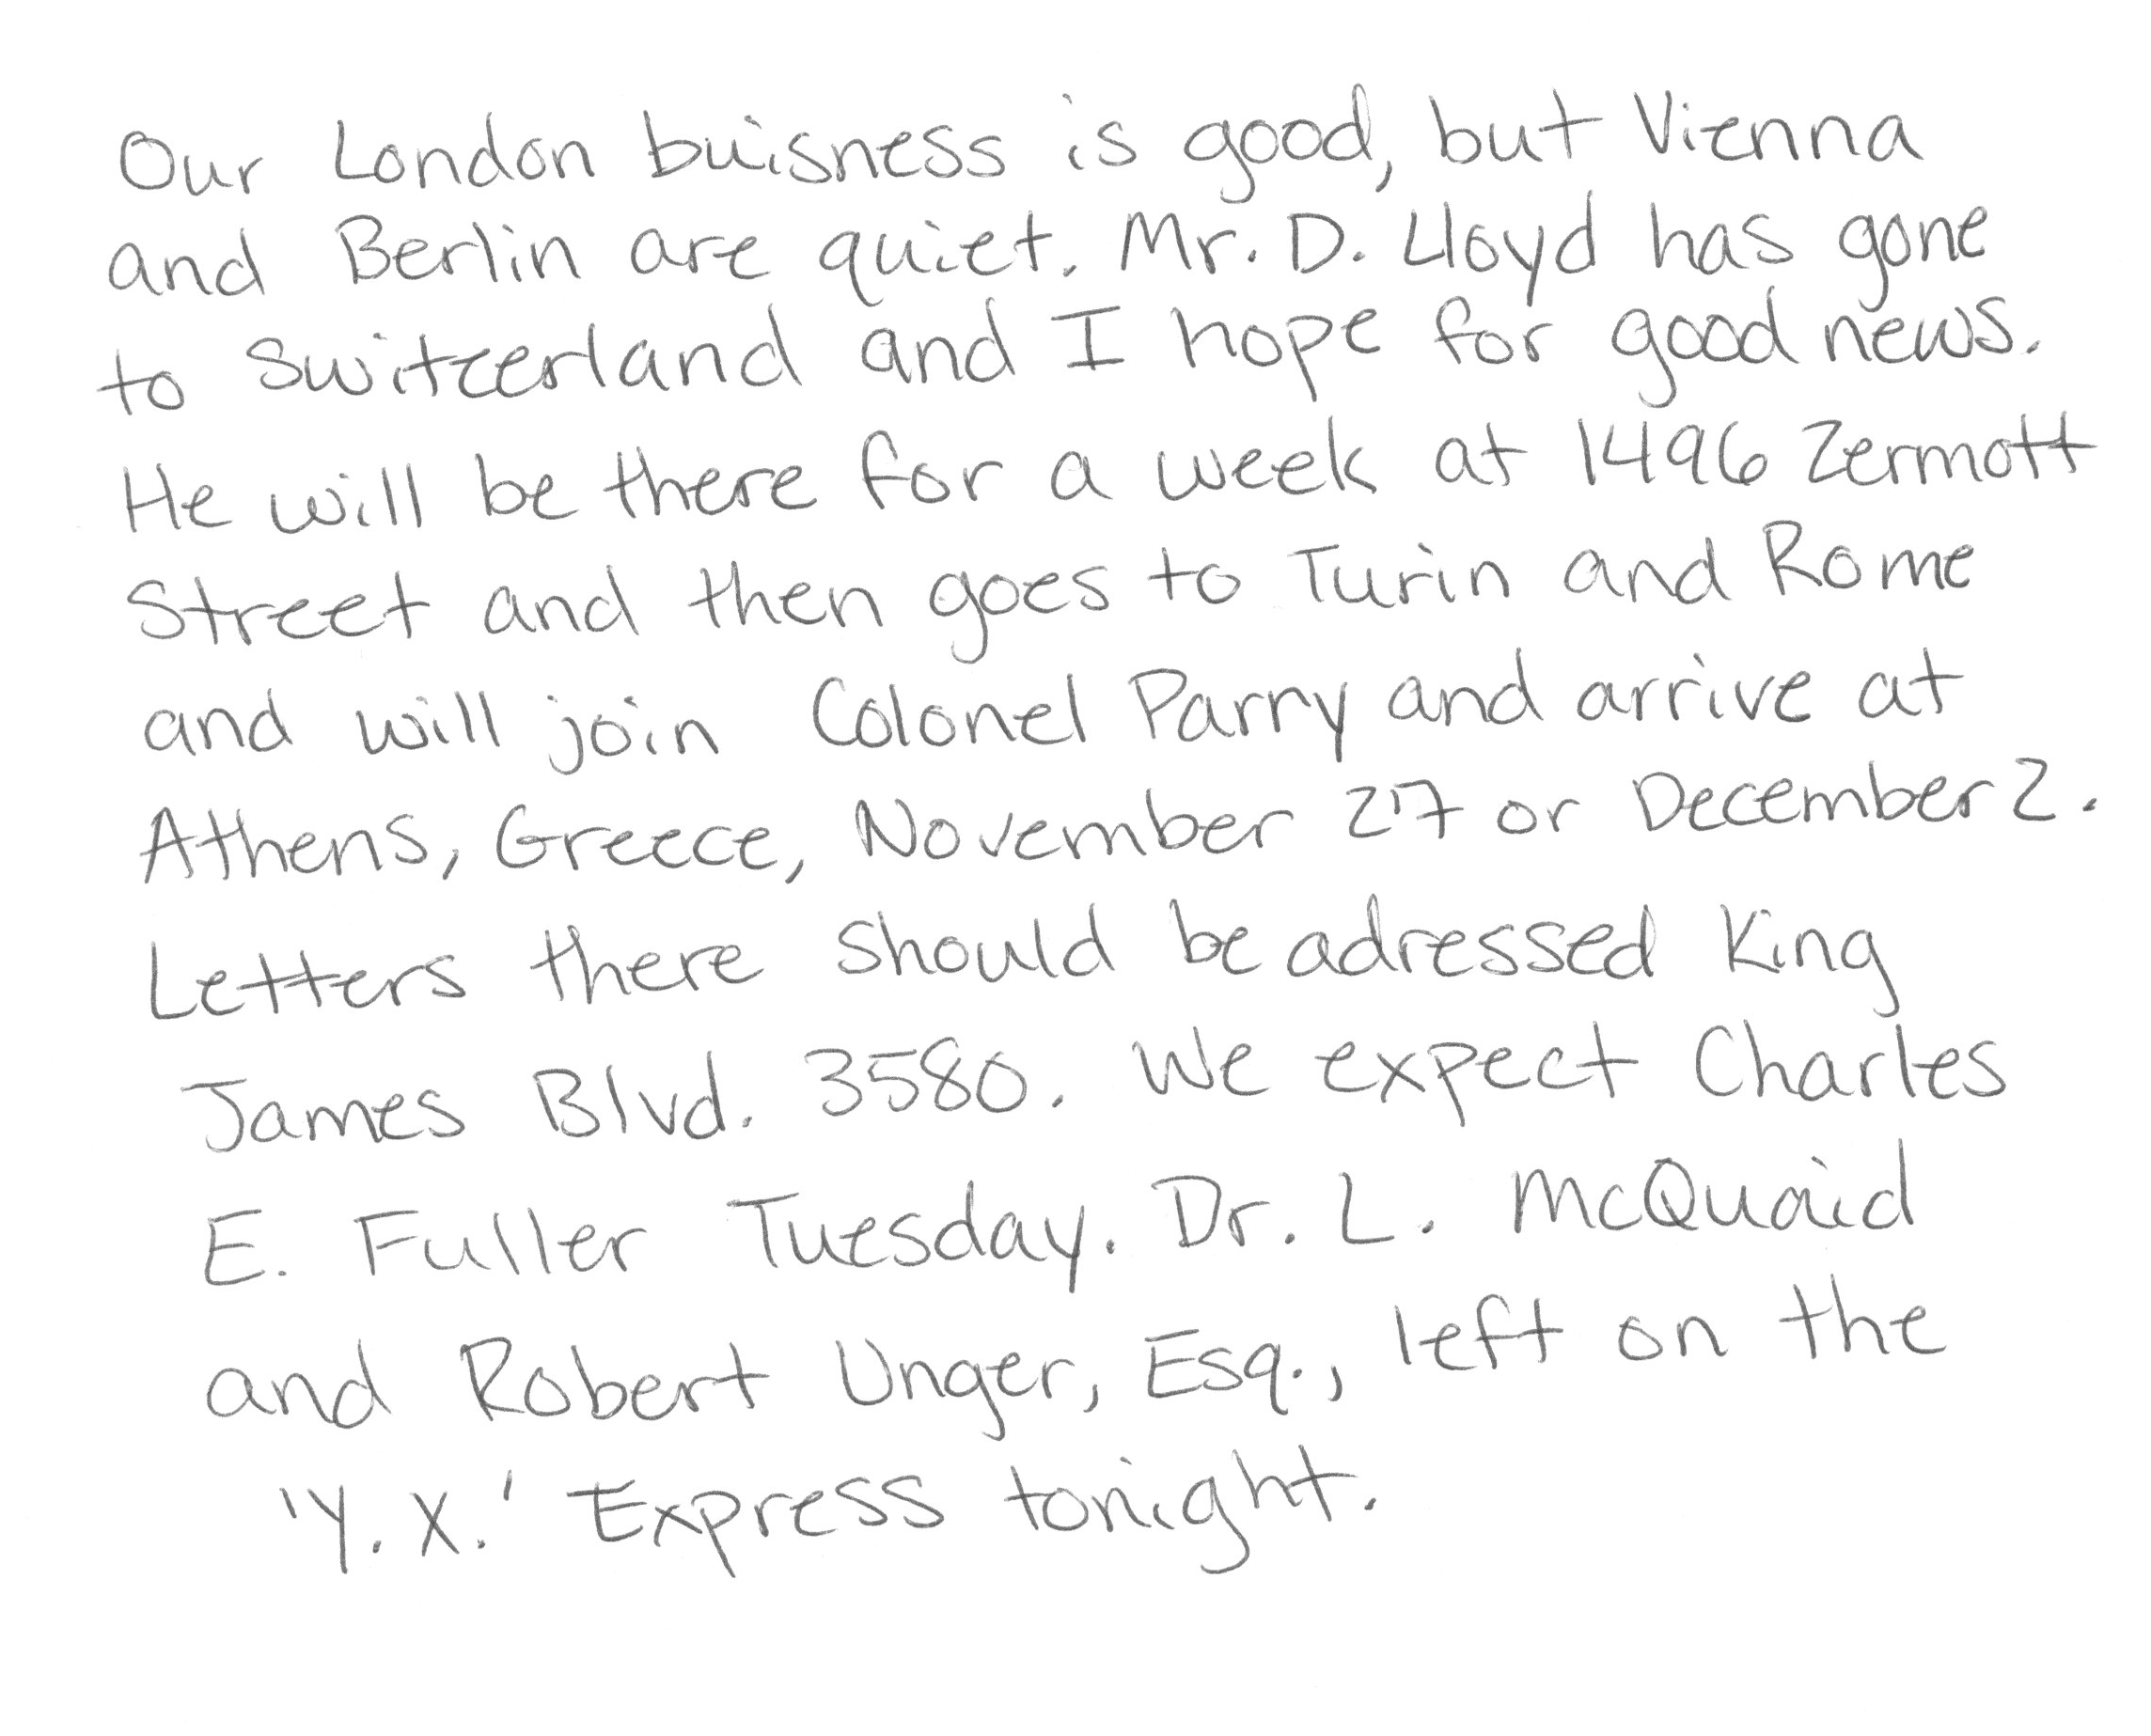 Our London buisness is good, but Vienna
and Berlin are quiet. Mr. D. Lloyd has gone
to Switzerland and I hope for good news.
He will be there for a week at 1496 Zermott
Street and then goes to Turin and Rome
and will join Colonel Parry and arrive at
Athens, Greece, November 27 or December 2.
Letters there should be adressed King
James Blvd. 3580. We expect Charles
E. Fuller Tuesday. Dr. L. McQuaid
and Robert Unger, Esq., left on the
'Y.X.' Express tonight.